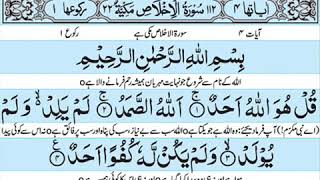 اٰیاتھا ۴ ۱۱۲ سُوْرَةُ الْاِخْلَاصِ مَكِّيَّةٌ ۲۲ رکوعھا ۱
آیات ۴ سورۃ الاخلاص مکی ہے رکوع ۱
بِسْمِ اللّٰهِ الرَّحْمٰنِ الرَّحِيْمِ
اللہ کے نام سے شروع جو نہایت مہربان ہمیشہ رحم فرمانے والا ہے o
قُلْ هُوَ اللّٰهُ اَحَدٌ ۚ ۱ اَللّٰهُ الصَّمَدُ ۚ ۲ لَمْ يَلِدْ ۙ وَلَمْ
(اے نبی مکرّم!) آپ فرما دیجئے: وہ اللہ ہے جو یکتا ہے o اللہ سب سے بے نیاز، سب کی پناہ اور سب پر فائق ہے o نہ اس سے کوئی پیدا
يُوْلَدْ ۙ ۳ وَلَمْ يَكُنْ لَّهٗ كُفُوًا اَحَدٌ ۴